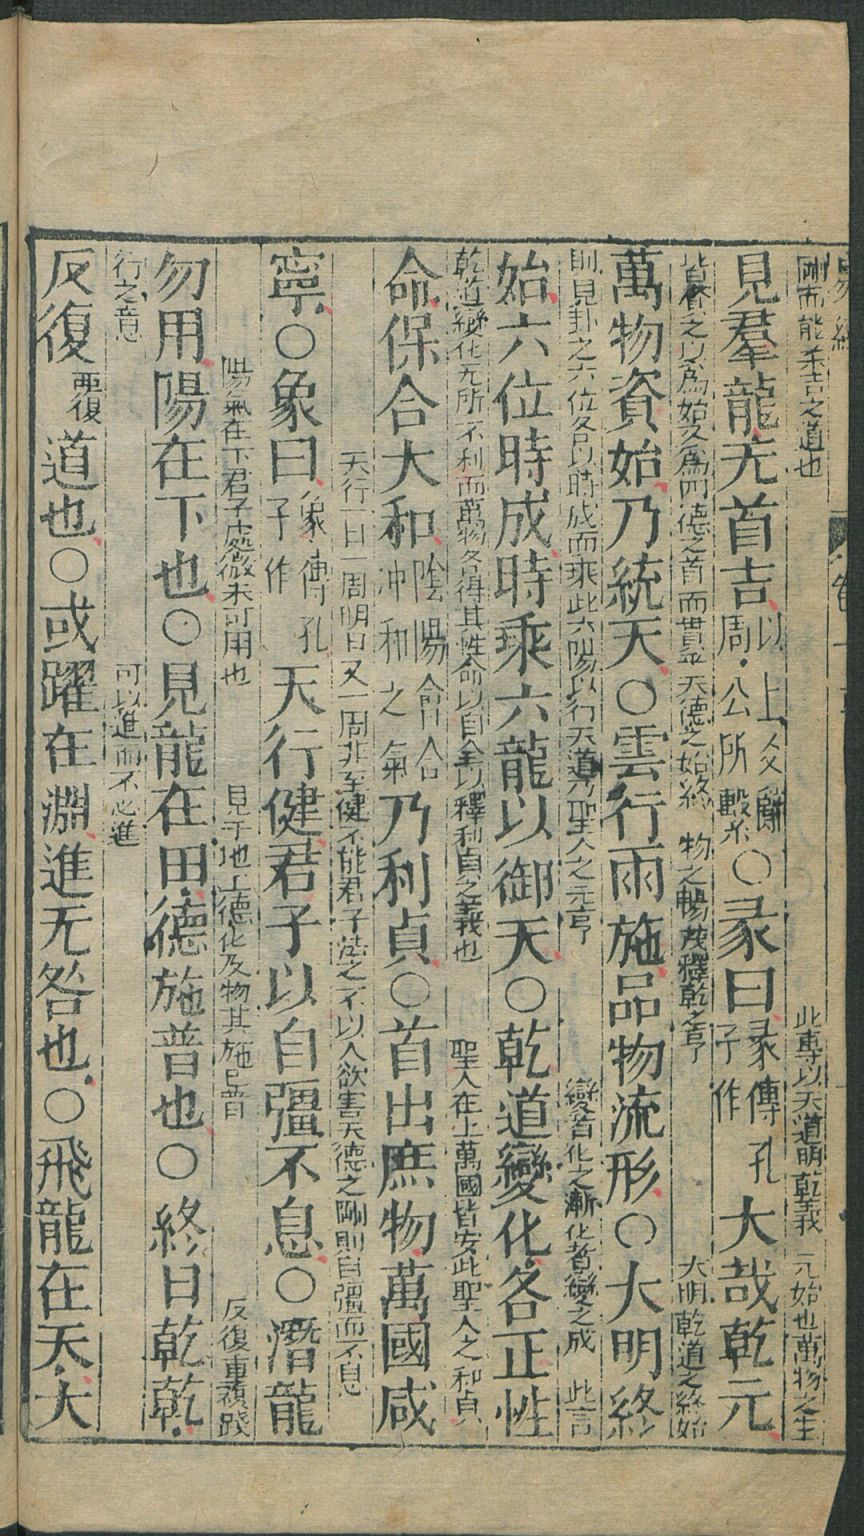 易經
卷一
剛而能柔吉之道也　此專以天道明乾義　元始也萬物之生
見羣龍无首吉以上爻辭周公所繫○彖曰彖傳孔子作大哉乾元
皆資之以爲始又爲四德之首而貫乎天德之始終　物之暢茂釋乾之亨　大明乾道之終始
萬物資始乃統天○雲行雨施品物流形○大明終
則見卦之六位各以時成而乘此六陽以行天道乃聖人之元亨　變者化之漸化者變之成　此言
始六位時成時乘六龍以御天○乾道變化各正性
乾道變化无所不利而萬物各得其性命以自全以釋利貞之義也　聖人在上萬國皆安此聖人之利貞
命保合大和陰陽會合冲和之氣乃利貞○首出庶物萬國咸
天行一日一周明日又一周非至健不能君子法之不以人欲害天德之剛則自彊而不息
寧○象曰象傳孔子作天行健君子以自彊不息○潛龍
陽氣在下君子處微未可用也　見于地上德化及物其施已普　反復重複踐
勿用陽在下也○見龍在田德施普也○終日乾乾
行之意　可以進而不必進
反復覀復道也○或躍在淵進无咎也○飛龍在天大